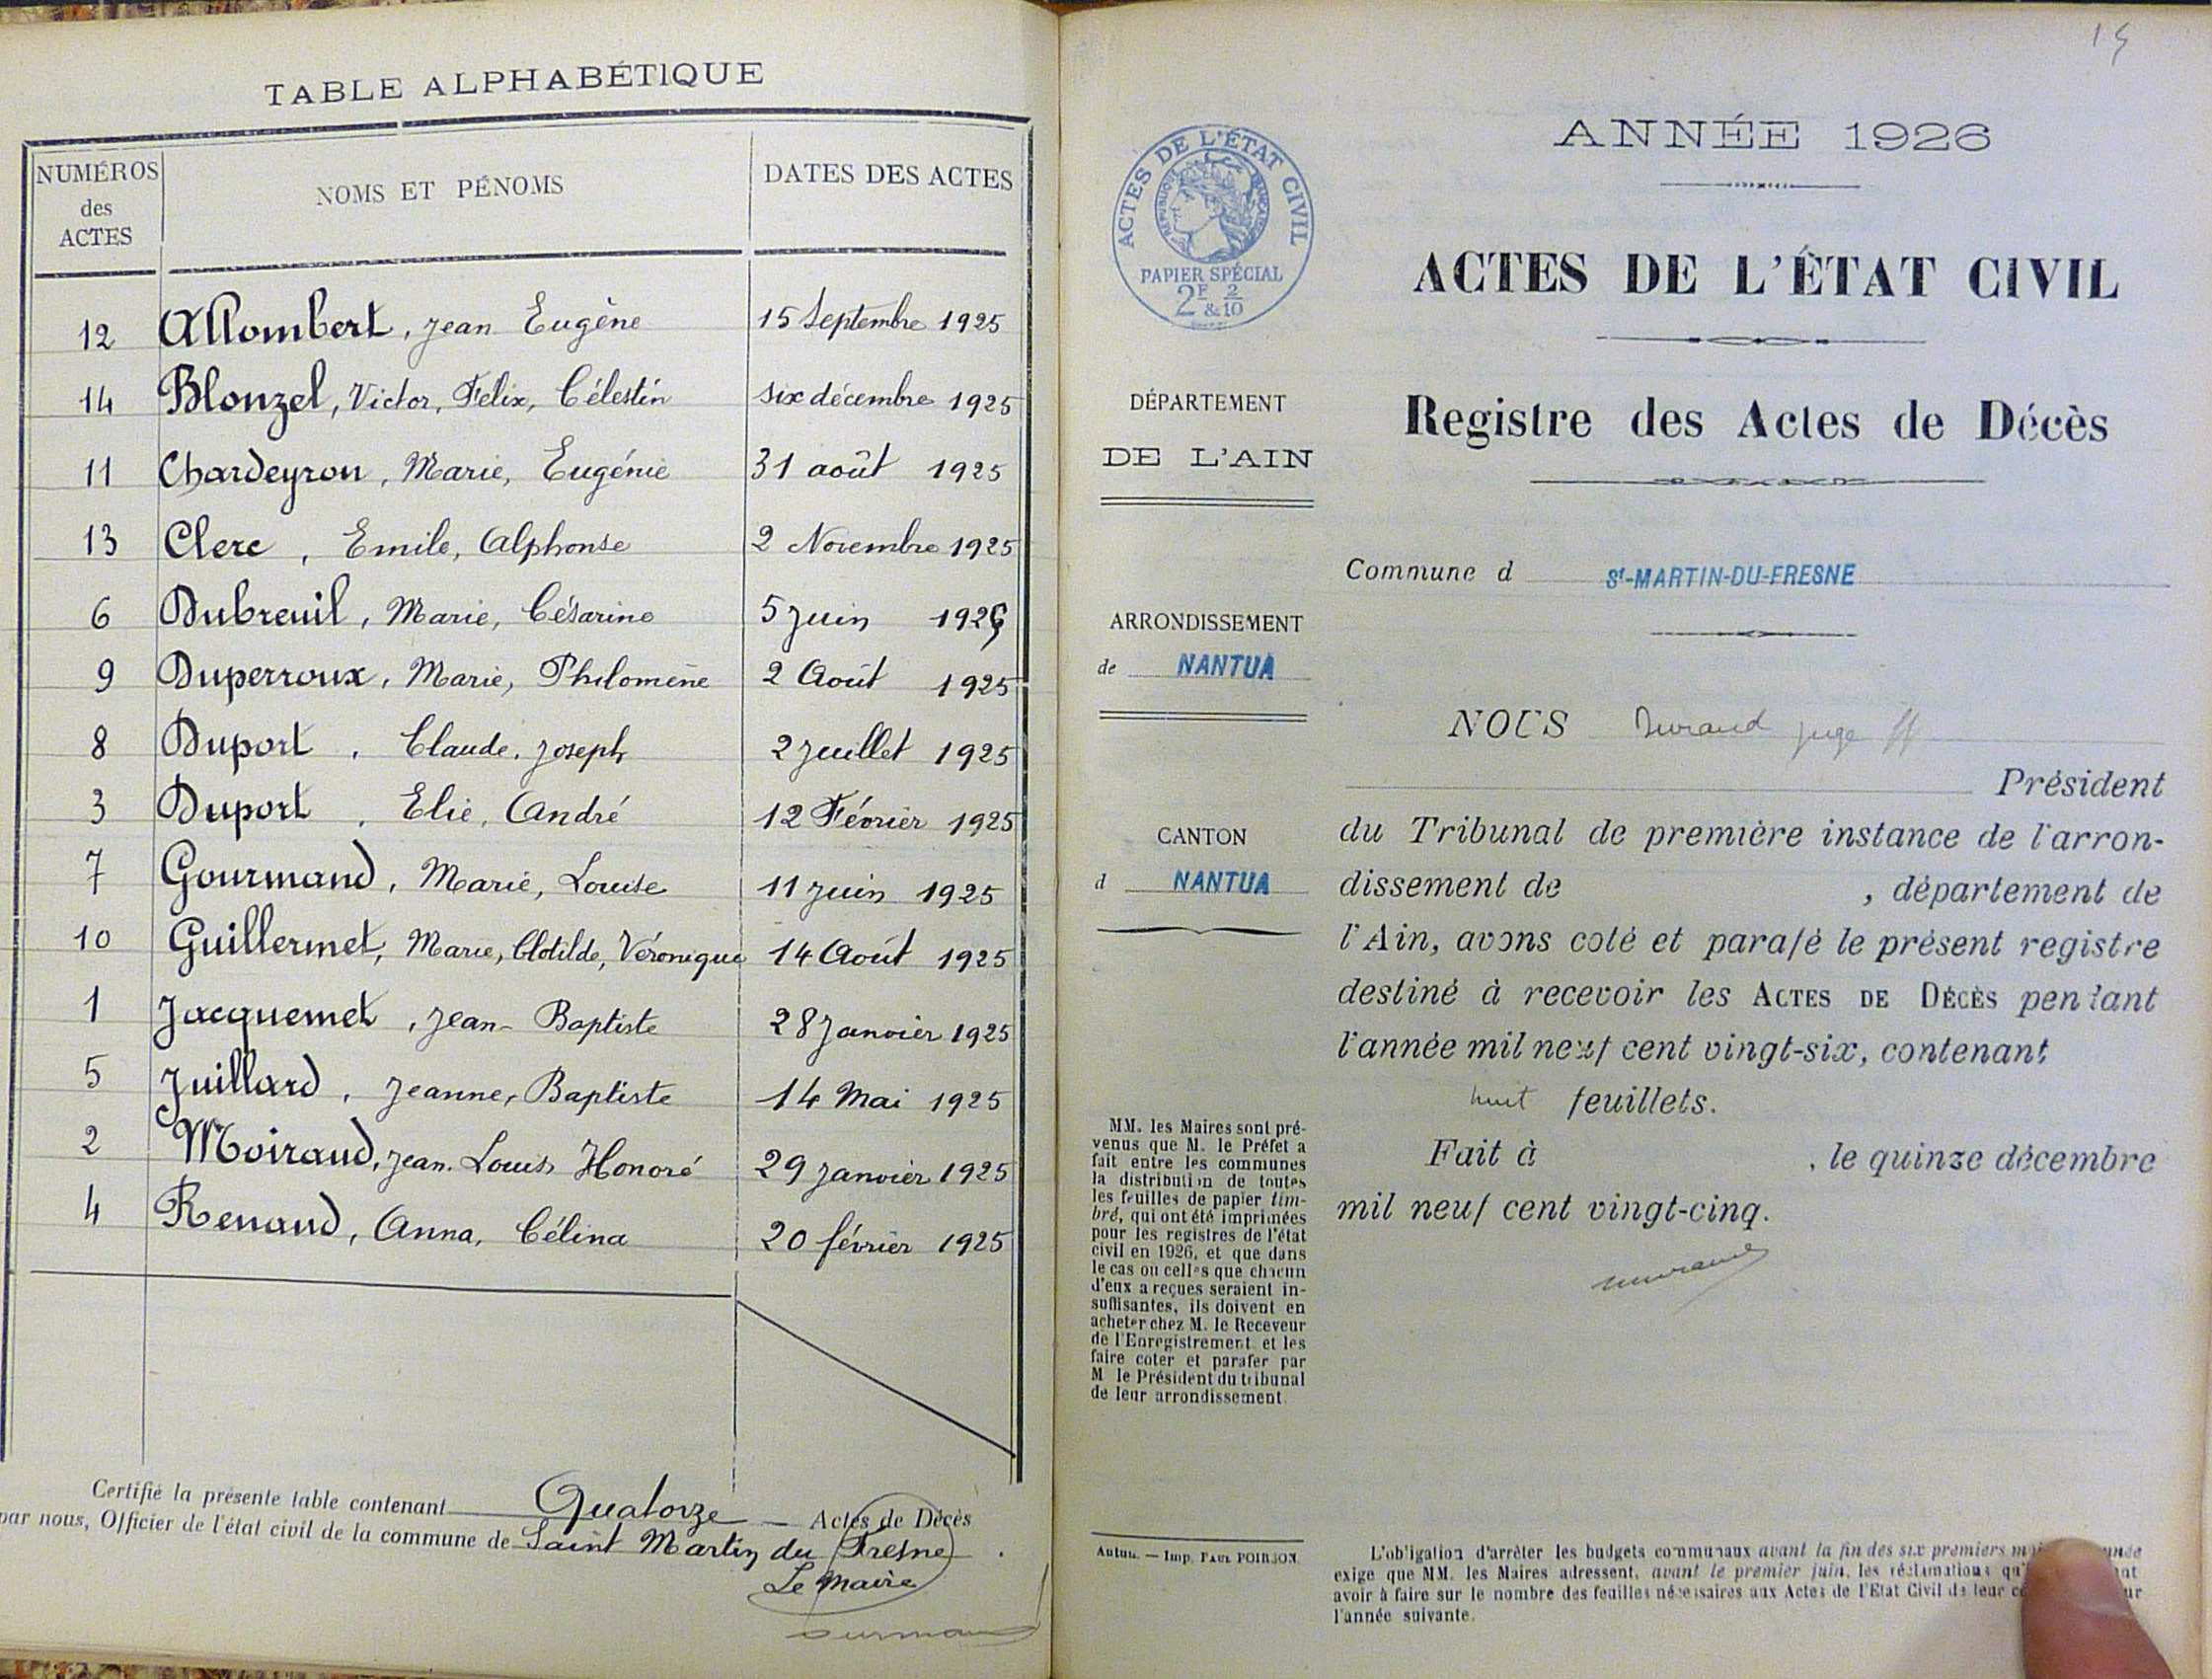 TABLE ALPHABÉTIQUE
NUMÉROS des ACTES | NOMS ET PÉNOMS | DATES DES ACTES
12 Allombert, Jean Eugène 15 Septembre 1925
14 Blonzel, Victor, Félix, Célestin six décembre 1925
11 Chardeyron, Marie, Eugénie 31 août 1925
13 Clerc, Emile, Alphonse 2 Novembre 1925
6 Dubreuil, Marie, Césarine 5 Juin 1925
9 Duperroux, Marie, Philomène 2 Août 1925
8 Duport, Claude, Joseph 2 Juillet 1925
3 Duport, Elie, André 12 Février 1925
7 Gourmand, Marie, Louise 11 Juin 1925
10 Guillermet, Marie, Clotilde, Véronique 14 Août 1925
1 Jacquemet, Jean-Baptiste 28 Janvier 1925
5 Juillard, Jeanne, Baptiste 14 Mai 1925
2 Moiraud, Jean. Louis Honoré 29 Janvier 1925
4 Renaud, Anna, Célina 20 février 1925
Certifié la présente table contenant Quatorze Actes de Décès
par nous, Officier de l'état civil de la commune de Saint Martin du Fresne.
Le Maire
15
ACTES DE L'ÉTAT CIVIL
RÉPUBLIQUE FRANÇAISE
PAPIER SPÉCIAL
2F & 2/10
DÉPARTEMENT
DE L'AIN
ARRONDISSEMENT
de NANTUA
CANTON
d NANTUA
MM. les Maires sont pré-
venus que M. le Préfet a
fait entre les communes
la distribution de toutes
les feuilles de papier tim-
bré, qui ont été imprimées
pour les registres de l'état
civil en 1926, et que dans
le cas ou celles que chacun
d'eux a reçues seraient in-
suffisantes, ils doivent en
acheter chez M. le Receveur
de l'Enregistrement et les
faire coter et parafer par
M le Président du tribunal
de leur arrondissement.
Autun. — Imp. PAUL POIRSON.
ANNÉE 1926
ACTES DE L'ÉTAT CIVIL
Registre des Actes de Décès
Commune d St-MARTIN-DU-FRESNE
NOUS Durand juge ff
Président
du Tribunal de première instance de l'arron-
dissement de , département de
l'Ain, avons coté et parafé le présent registre
destiné à recevoir les ACTES DE DÉCÈS pendant
l'année mil neuf cent vingt-six, contenant
huit feuillets.
Fait à , le quinze décembre
mil neuf cent vingt-cinq.
L'obligation d'arrêter les budgets communaux avant la fin des six premiers
exige que MM. les Maires adressent, avant le premier juin, les réclamations
avoir à faire sur le nombre des feuilles nécessaires aux Actes de l'Etat Civil de leur
l'année suivante.